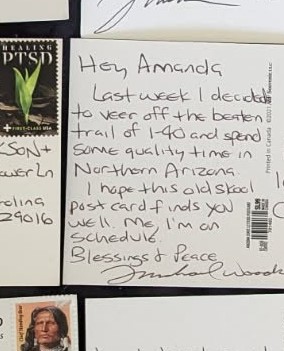 HEALING
PTSD
FIRST-CLASS
SON+
Ln
rolina
29016
Hey, Amanda
Last week I decided
to veer off the beaten
trail of I-40 and spend
some quality time in
Northern Arizona.
I hope this old skool
post card finds you
well. Me, I'm on
schedule.
Blessings & Peace
Printed in Canada ©2021
Chief Standing Bear